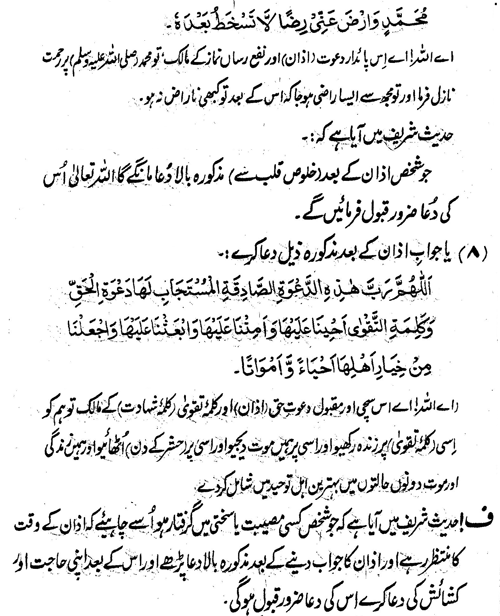 مُحَمَّدٍ وَارْضَ عَنِّیْ رِضًا لَّا تَسْخَطُ بَعْدَهٗ۔
اے اللہ! اے اِس پائدار دعوت (اذان) اور نفع رساں نماز کے مالک، تو محمد (صلی اللہ علیہ وسلم) پر رحمت
نازل فرما اور تو مجھ سے ایسا راضی ہو جا کہ اس کے بعد تو کبھی ناراض نہ ہو۔
حدیث شریف میں آیا ہے کہ:۔
جو شخص اذان کے بعد (خلوصِ قلب سے) مذکورہ بالا دُعا مانگے گا اللہ تعالیٰ اُس
کی دُعا ضرور قبول فرمائیں گے۔
(۸) یا جوابِ اذان کے بعد مذکورہ ذیل دعا کرے:۔
اَللّٰهُمَّ رَبَّ هٰذِهِ الدَّعْوَةِ الصَّادِقَةِ الْمُسْتَجَابِ لَهَا دَعْوَةِ الْحَقِّ
وَكَلِمَةِ التَّقْوٰى اَحْيِنَا عَلَيْهَا وَاَمِتْنَا عَلَيْهَا وَابْعَثْنَا عَلَيْهَا وَاجْعَلْنَا
مِنْ خِيَارِ اَهْلِهَا اَحْيَاءً وَّ اَمْوَاتًا۔
(اے اللہ! اے اس سچی اور مقبول دعوتِ حق (اذان) اور کلمۂ تقویٰ (کلمۂ شہادت) کے مالک تو ہم کو
اِسی (کلمۂ تقویٰ) پر زندہ رکھیو اور اسی پر ہمیں موت دیجیو اور اسی پر (حشر کے دن) اُٹھائیو اور ہمیں زندگی
اور موت دونوں حالتوں میں بہترین اہلِ توحید میں شامل کر دے۔
ف! حدیث شریف میں آیا ہے کہ جو شخص کسی مصیبت یا سختی میں گرفتار ہو اُسے چاہیئے کہ اذان کے وقت
کا منتظر رہے اور اذان کا جواب دینے کے بعد مذکورہ بالا دعا پڑھے اور اس کے بعد اپنی حاجت اور
کشائش کی دعا کرے اس کی دعا ضرور قبول ہوگی۔